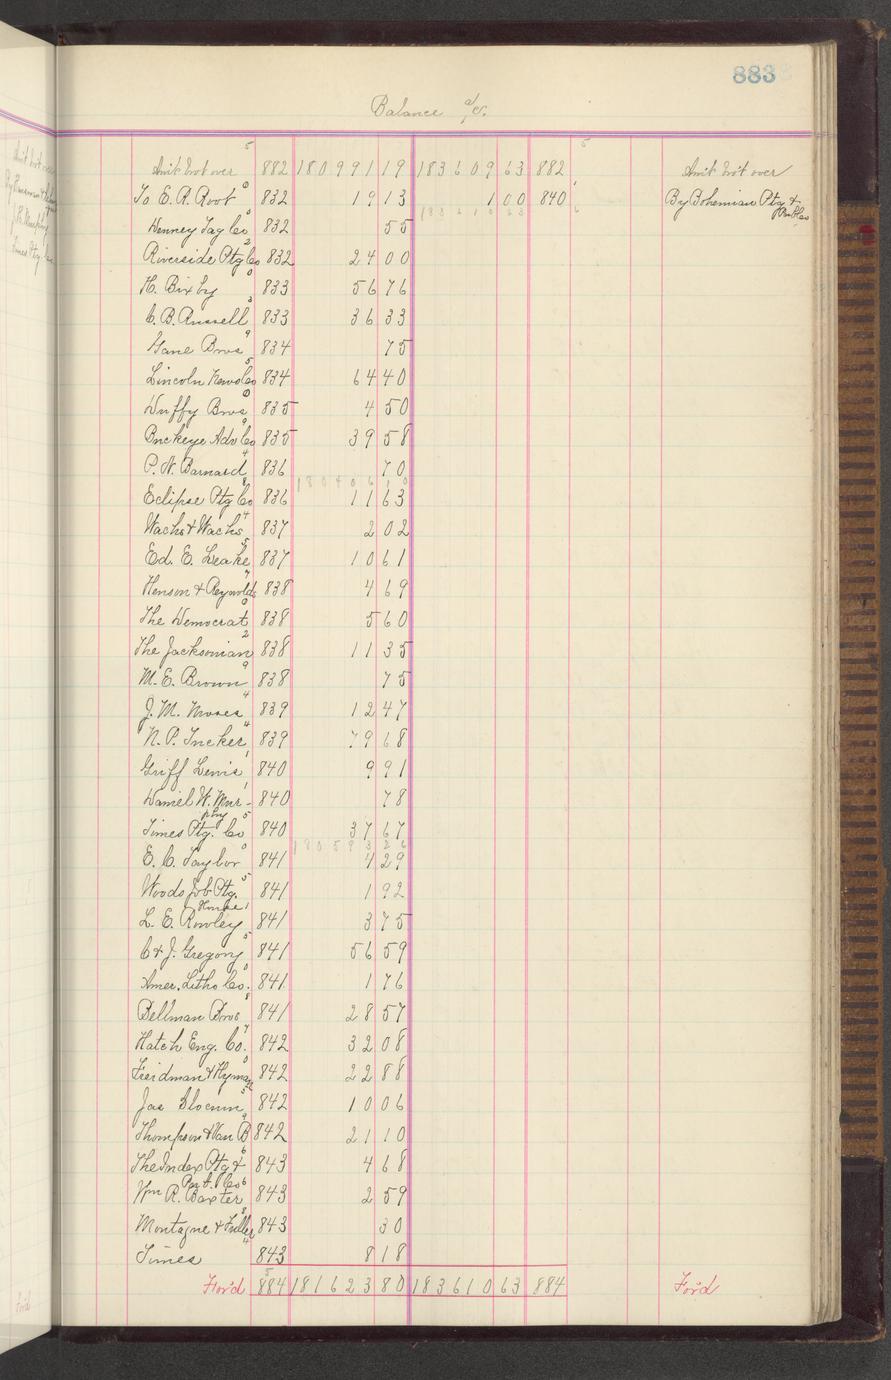 883
Balance a/c.
Amt brot over 882 180991 19 183609 63 882 Amt bro't over
To E. R. Root 832 19 13 1 00 840 By Bohemian Ptg &
Pub Co
183610 63
Henney Tag Co 832 55
Riverside Ptg Co 832 24 00
H. Bixby 833 56 76
C. B. Russell 833 36 33
Gane Bros 834 75
Lincoln News Co 834 64 40
Duffy Bros 835 4 50
Buckeye Adv Co 835 39 58
P. N. Barnard 836 70
Eclipse Ptg Co 836 11 63
Wachs & Wachs 837 2 02
Ed. E. Leake 837 10 61
Henson & Reynolds 838 4 69
The Democrat 838 5 60
The Jacksonian 838 11 35
M. E. Brown 838 75
J. M. Moses 839 12 47
N. P. Tucker 839 79 68
Griff Lewis 840 9 91
Daniel W. Mur- 840 78
phy
Times Ptg. Co 840 37 67
180593 26
E. C. Taylor 841 4 29
Woods Job Ptg. 841 1 92
House
L. E. Rowley 841 3 75
C & J. Gregory 841 56 59
Amer. Litho Co. 841 1 76
Bellman Bros 841 28 57
Hatch Eng. Co. 842 32 08
Freidman & Hyman 842 22 88
Jas Slocum 842 10 06
Thompson & Van B 842 21 10
The Index Ptg & 843 4 68
Pub. Co
Wm R. Baxter 843 2 59
Montagne & Fuller 843 30
Times 843 8 18
For'd 884 181623 80 183610 63 884 For'd